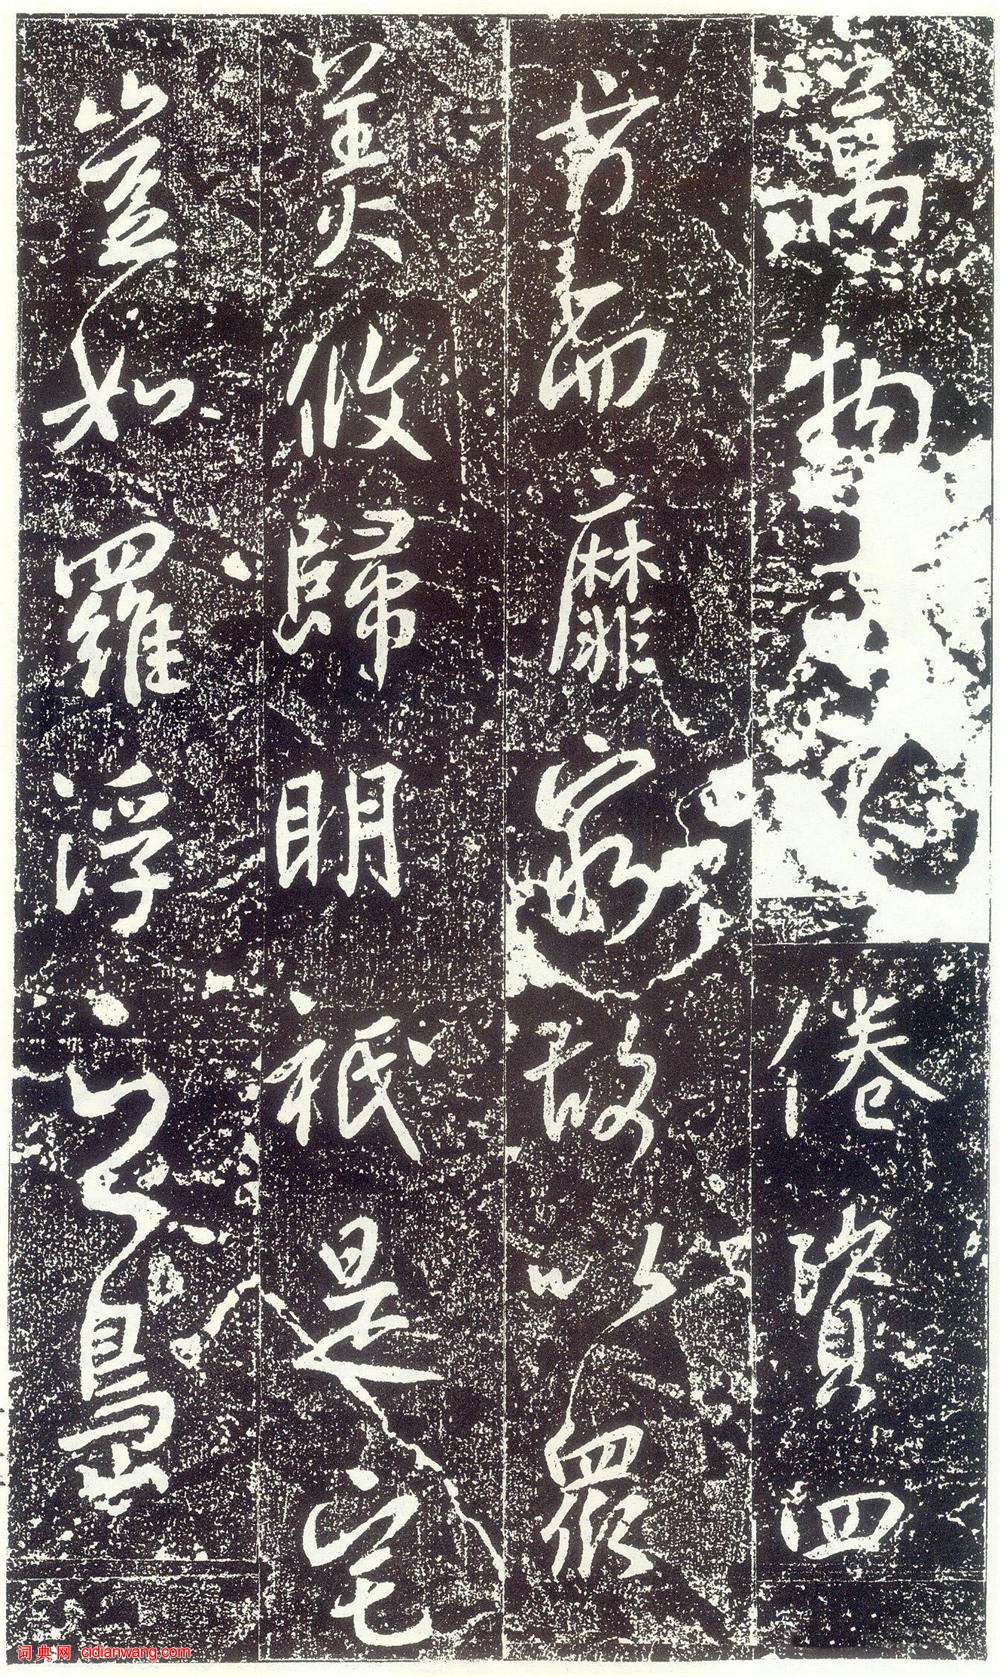 萬物倦賓四
方而靡故以眾
美攸歸明祇是宅
豈如羅浮之島
词典网 cidianwang.com